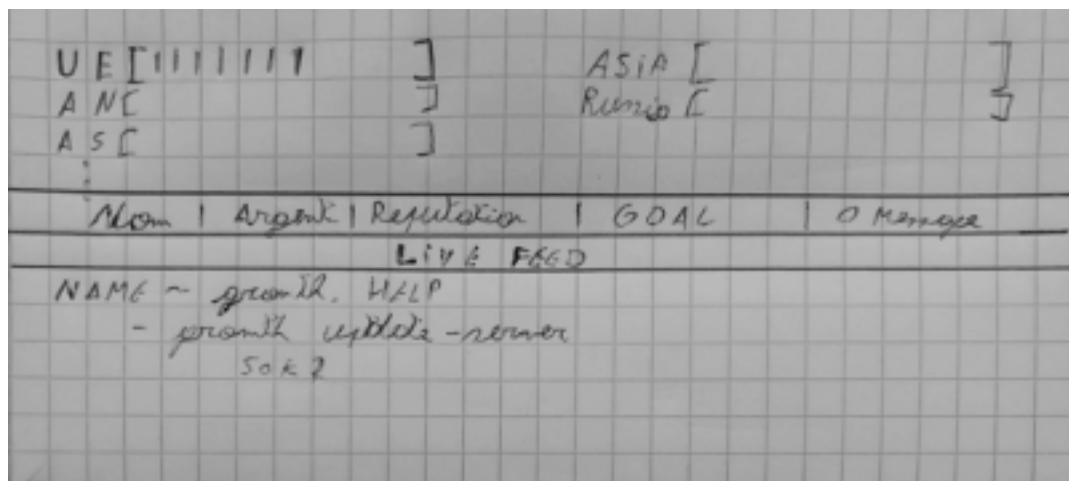 UE[||||||| ] ASiA [ ]
AN[ ] Russie [ ]
AS[ ]
Nom | Argent | Reputation | GOAL | 0 Message
LiVE FEED
NAME ~ growth. HELP
- growth update-server
50k ?